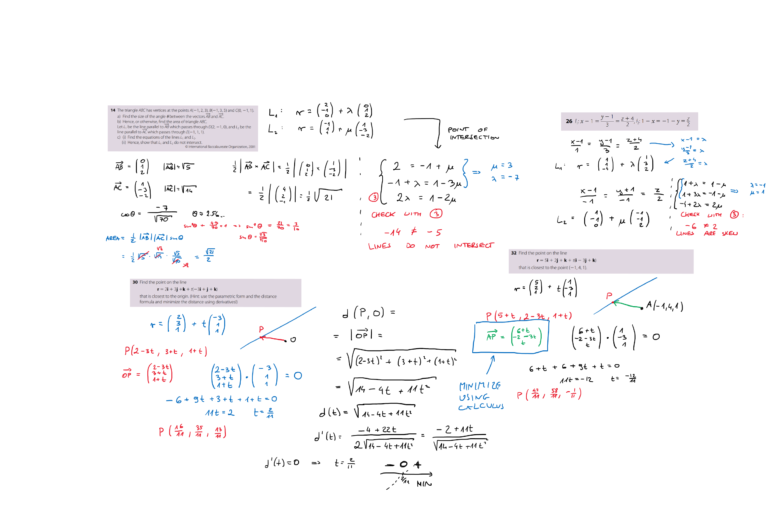 14 The triangle ABC has vertices at the points A(−1, 2, 3), B(−1, 3, 5) and C(0, −1, 1).
a) Find the size of the angle θ between the vectors AB and AC.
b) Hence, or otherwise, find the area of triangle ABC.
Let L₁ be the line parallel to AB which passes through D(2, −1, 0), and L₂ be the line parallel to AC which passes through E(−1, 1, 1).
c) (i) Find the equations of the lines L₁ and L₂.
(ii) Hence, show that L₁ and L₂ do not intersect.
© International Baccalaureate Organization, 2001
AB = (0 1 2) |AB| = √5
AC = (1 −3 −2) |AC| = √14
cos θ = −7/√70 θ = 2.56...
sin θ = √21/√70
AREA = 1/2 |AB||AC| sin θ
= √21/2
1/2 |AB × AC| = 1/2 |(0 1 2) × (1 −3 −2)|
= 1/2 |(4 2 −1)| = 1/2 √21
L₁: r = (2 −1 0) + λ (0 1 2)
L₂: r = (−1 1 1) + μ (1 −3 −2)
POINT OF
INTERSECTION
2 = −1 + μ
−1 + λ = 1 − 3μ
2λ = 1 − 2μ
⇒ μ = 3
λ = −7
③
CHECK WITH ③
−14 ≠ −5
LINES DO NOT INTERSECT
26 l₁: x − 1 = (y−1)/3 = (z+4)/2
(x−1)/1 = (y−1)/3 = (z+4)/2
x−1 = λ
(y−1)/3 = λ
(z+4)/2 = λ
(x−1)/−1 = (y+1)/−1 = z/2
1 + λ = 1 − μ
1 + 3λ = −1 − μ
L₂ = (1 −1 0) + μ (−1 −1 2)
CHECK WITH ③:
−6 ≠ 2
LINES ARE SKEW
30 Find the point on the line
r = 2i + 3j + k + t(−3i + j + k)
that is closest to the origin. (Hint: use the parametric form and the distance formula and minimize the distance using derivatives!)
r = (2 3 1) + t (−3 1 1)
P
O
P(2−3t, 3+t, 1+t)
OP = (2−3t 3+t 1+t)
(2−3t 3+t 1+t) · (−3 1 1) = 0
−6 + 9t + 3 + t + 1 + t = 0
11t = 2 t = 2/11
P(16/11, 35/11, 13/11)
d(P, O) =
= |OP| =
= √((2−3t)² + (3+t)² + (1+t)²)
= √(14 − 4t + 11t²)
d(t) = √(14 − 4t + 11t²)
d'(t) = (−4 + 22t)/(2√(14 − 4t + 11t²)) = (−2 + 11t)/√(14 − 4t + 11t²)
d'(t) = 0 ⇒ t = 2/11
− 0 +
2/11 MIN
32 Find the point on the line
r = 5i + 2j + k + t(i − 3j + k)
that is closest to the point (−1, 4, 1).
r = (5 2 1) + t (1 −3 1)
P
A(−1,4,1)
P(5+t, 2−3t, 1+t)
AP = (6+t −2−3t t)
(6+t −2−3t t) · (1 −3 1) = 0
6 + t + 6 + 9t + t = 0
11t = −12 t = −12/11
P(43/11, 58/11, −1/11)
MINIMIZE
USING
CALCULUS